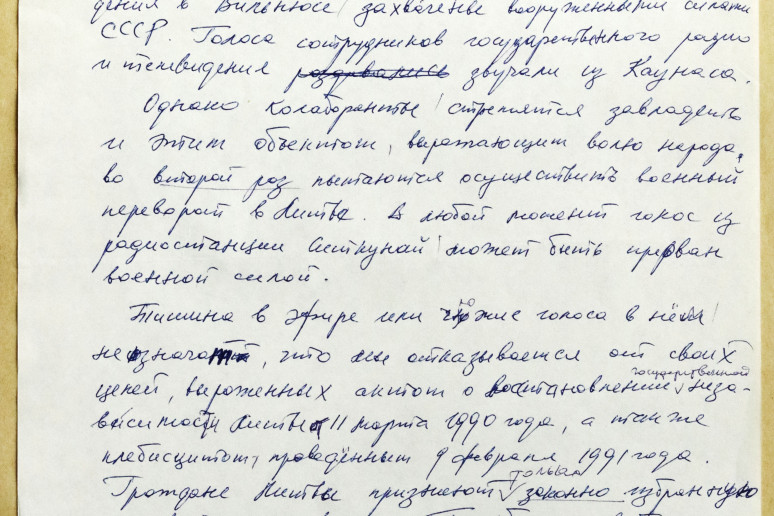 дения в Вильнюсе захвачены вооруженными силами
СССР. Голоса сотрудников государственного радио
и телевидения раздавались звучали из Каунаса.
Однако колаборанты стремятся завладеть
и этим объектом, выражающим волю народа,
во второй раз пытаются осуществить военный
переворот в Литве. В любой момент голос из
радиостанции Ситкунай может быть прерван
военной силой.
Тишина в эфире или чужие голоса в нём
не означают, что мы отказываемся от своих
государственной
целей, выраженных актом о восстановлении неза-
висимости Литвы 11 марта 1990 года, а также
плебисцитом, проведённым 9 февраля 1991 года.
только
Граждане Литвы признают законно избранную